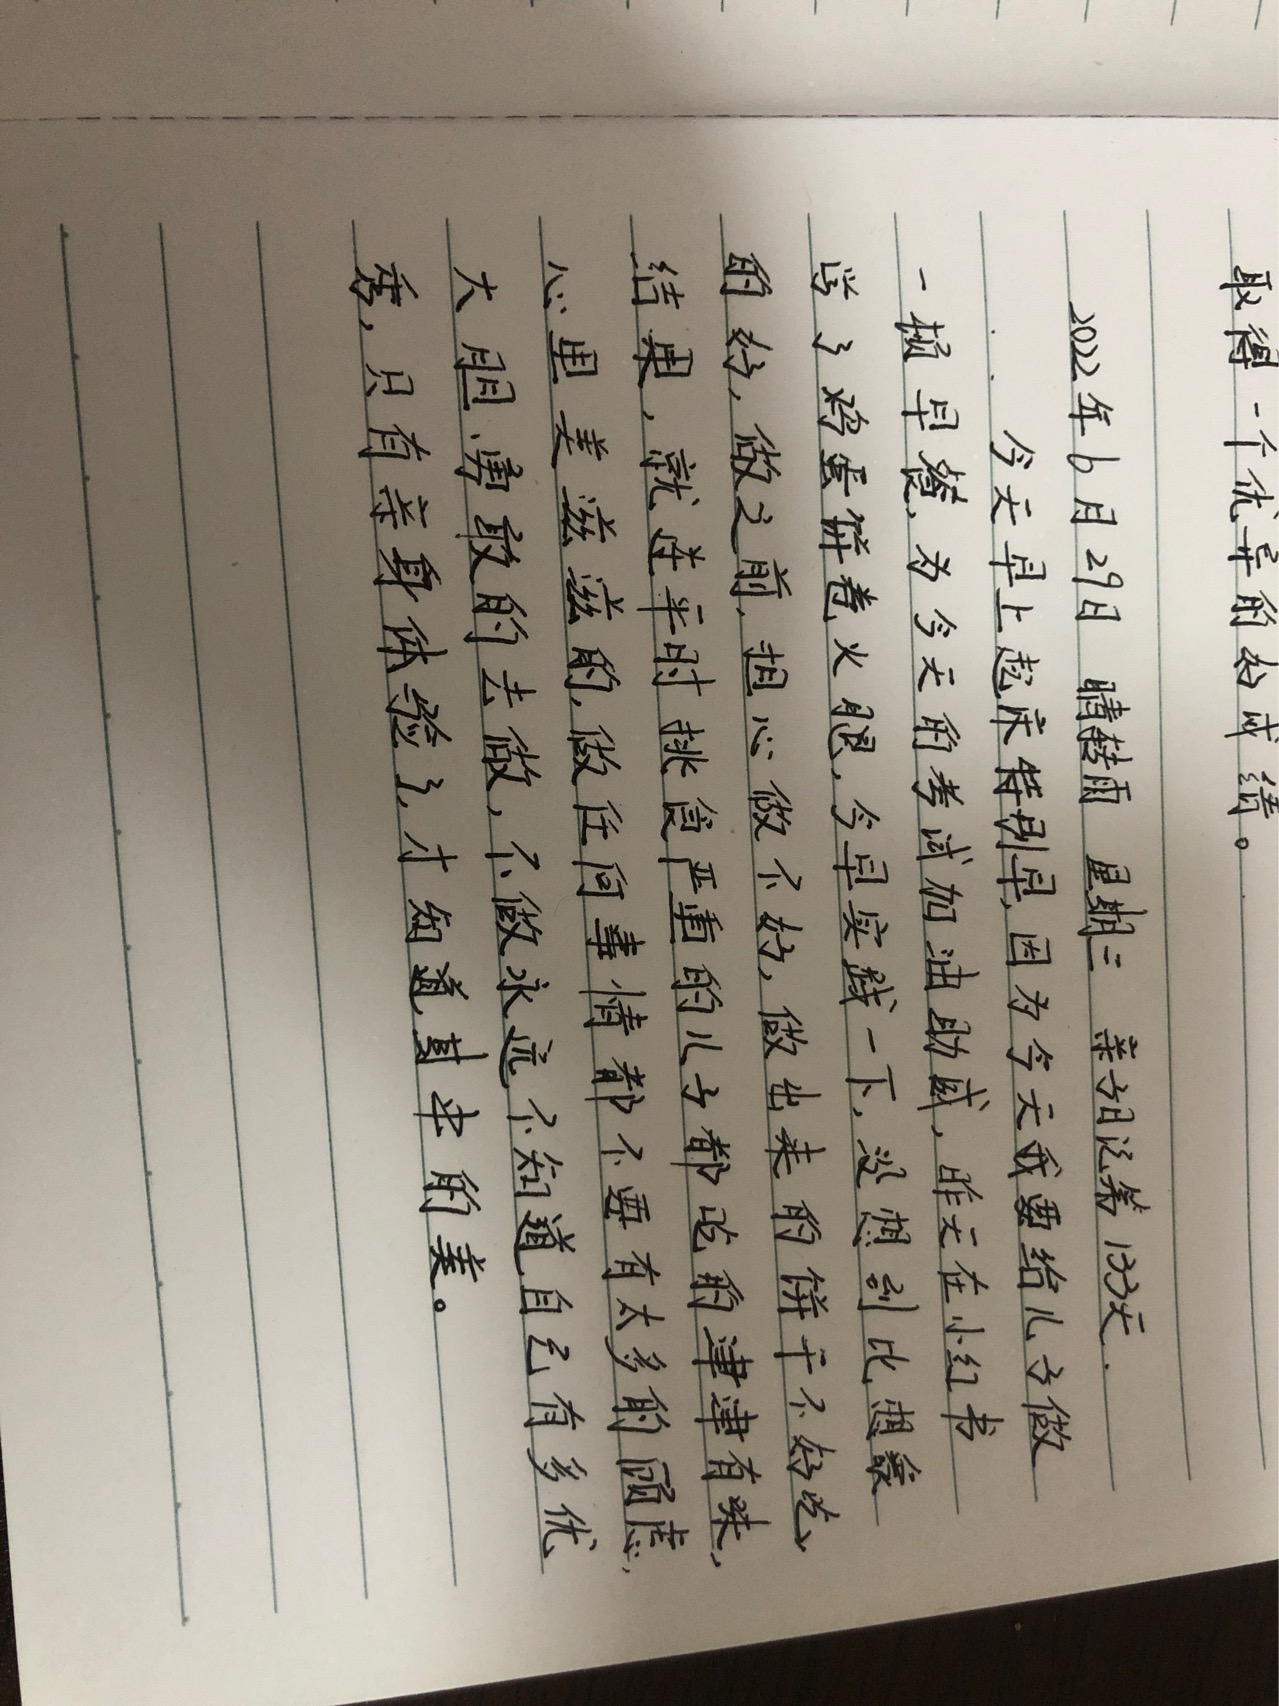 取得一个优异的好成绩。
2022年6月29日 晴转雨 星期三 亲子日记第133天.
今天早上起床特别早,因为今天我要给儿子做
一顿早餐,为今天的考试加油助威,昨天在小红书
学了鸡蛋饼卷火腿,今早实践一下,没想到比想象
的好,做之前,担心做不好,做出来的饼干不好吃,
结果,就连平时挑食严重的儿子都吃的津津有味,
心里美滋滋的,做任何事情都不要有太多的顾虑,
大胆、勇敢的去做,不做永远不知道自己有多优
秀,只有亲身体验了,才知道其中的美。